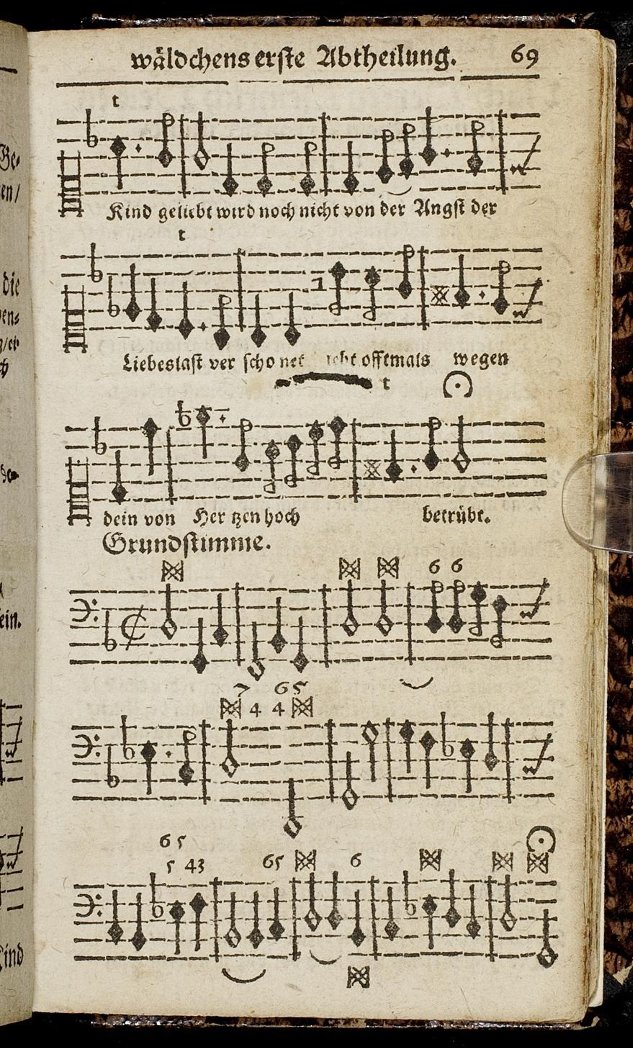 wäldchens erste Abtheilung. 69
t
Kind geliebt wird noch nicht von der Angst der
t
Liebeslast ver scho net offtmals wegen
t
dein von Her tzen hoch betrübt.
Grundstimme.
6 6
7 6 5
4 4
6 5
5 4 3 6 5 6